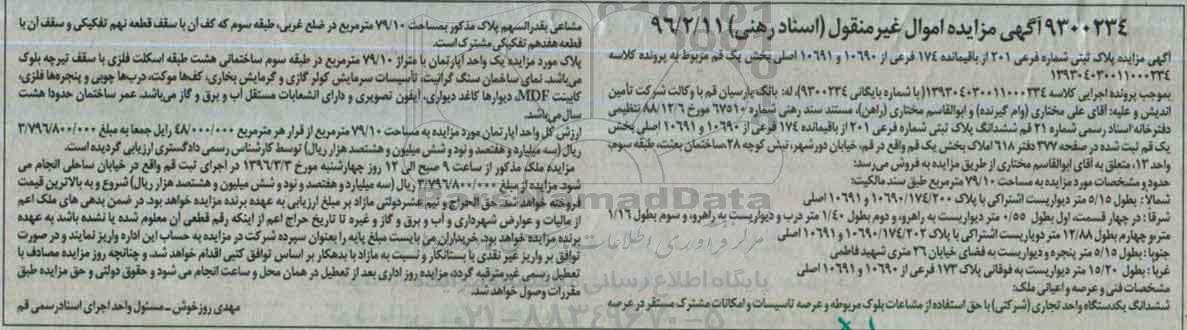 ۹۳۰۰۲۳۴ آگهی مزایده اموال غیر منقول (اسناد رهنی) ۹۶/۲/۱۱
آگهی مزایده پلاک ثبتی شماره فرعی ۲۰۱ از باقیمانده ۱۷۴ فرعی از ۱۰۶۹۰ و ۱۰۶۹۱ اصلی بخش یک قم مربوط به پرونده کلاسه
۱۳۹۳۰۴۰۳۰۰۱۱۰۰۰۲۳۴
بموجب پرونده اجرایی کلاسه ۱۳۹۳۰۴۰۳۰۰۱۱۰۰۰۲۳۴ (با شماره بایگانی ۹۳۰۰۲۳۴)، له: بانک پارسیان قم با وکالت شرکت تأمین
اندیش و علیه: آقای علی مختاری (وام گیرنده) و ابوالقاسم مختاری (راهن)، مستند سند رهنی شماره ۶۷۵۱۰ مورخ ۸۸/۱۲/۶ تنظیمی
دفترخانه اسناد رسمی شماره ۲۱ قم ششدانگ پلاک ثبتی شماره فرعی ۲۰۱ از باقیمانده ۱۷۴ فرعی از ۱۰۶۹۰ و ۱۰۶۹۱ اصلی بخش
یک قم ثبت شده در صفحه ۳۷۷ دفتر ۶۱۸ املاک بخش یک قم واقع در قم، خیابان دورشهر، نبش کوچه ۲۸، ساختمان بعثت، طبقه سوم،
واحد ۱۳، متعلق به آقای ابوالقاسم مختاری از طریق مزایده به فروش می‌رسد:
حدود و مشخصات مورد مزایده به مساحت ۷۹/۱۰ مترمربع طبق سند مالکیت:
شمالا: بطول ۵/۱۵ متر دیواریست اشتراکی با پلاک ۱۰۶۹۰/۱۷۴/۲۰۰ و ۱۰۶۹۱ اصلی
شرقا: در چهار قسمت، اول بطول ۰/۵۵ متر دیواریست به راهرو، دوم بطول ۱/۴۰ متر درب و دیواریست به راهرو، و سوم بطول ۱/۱۶
متر و چهارم بطول ۱۲/۸۸ متر دیواریست اشتراکی با پلاک ۱۰۶۹۰/۱۷۴/۲۰۲ و ۱۰۶۹۱ اصلی
جنوبا: بطول ۵/۱۵ متر پنجره و دیواریست به فضای خیابان ۳۶ متری شهید فاطمی
غربا: بطول ۱۵/۲۰ متر دیواریست به فوقانی پلاک ۱۷۳ فرعی از ۱۰۶۹۰ و ۱۰۶۹۱ اصلی
مشخصات فنی و عرصه و اعیانی ملک:
ششدانگ یکدستگاه واحد تجاری (شرکتی) با حق استفاده از مشاعات بلوک مربوطه و عرصه تاسیسات و امکانات مشترک مستقر در عرصه
مشاعی بقدرالسهم پلاک مذکور بمساحت ۷۹/۱۰ مترمربع در ضلع غربی، طبقه سوم که کف آن با سقف قطعه نهم تفکیکی و سقف آن با
قطعه هفدهم تفکیکی مشترک است.
پلاک مورد مزایده یک واحد آپارتمان با متراژ ۷۹/۱۰ مترمربع در طبقه سوم ساختمانی هشت طبقه اسکلت فلزی با سقف تیرچه بلوک
می‌باشد. نمای ساختمان سنگ گرانیت، تأسیسات سرمایش کولر گازی و گرمایش بخاری، کف‌ها موکت، درب‌ها چوبی و پنجره‌ها فلزی،
کابینت MDF، دیوارها کاغذ دیواری، آیفون تصویری و دارای انشعابات مستقل آب و برق و گاز می‌باشد. عمر ساختمان حدودا هشت
سال می‌باشد.
ارزش کل واحد آپارتمان مورد مزایده به مساحت ۷۹/۱۰ مترمربع از قرار هر مترمربع ۴۸/۰۰۰/۰۰۰ رایل جمعا به مبلغ ۳/۷۹۶/۸۰۰/۰۰۰
ریال (سه میلیارد و هفتصد و نود و شش میلیون و هشتصد هزار ریال) توسط کارشناس رسمی دادگستری ارزیابی گردیده است.
مزایده ملک مذکور از ساعت ۹ صبح الی ۱۲ روز چهارشنبه مورخ ۱۳۹۶/۳/۳ در اجرای ثبت قم واقع در خیابان ساحلی انجام می
شود. مزایده از مبلغ ۳/۷۹۶/۸۰۰/۰۰۰ ریال (سه میلیارد و هفتصد و نود و شش میلیون و هشتصد هزار ریال) شروع و به بالاترین قیمت
فروخته خواهد شد. حق الحراج و نیم عشر دولتی مازاد بر مبلغ ارزیابی به عهده برنده مزایده خواهد بود. در ضمن بدهی های ملک اعم
از مالیات و عوارض شهرداری و آب و برق و گاز و غیره تا تاریخ حراج اعم از اینکه رقم قطعی آن معلوم شده یا نشده باشد به عهده
برنده مزایده خواهد بود. خریداران می بایست مبلغ پایه را بعنوان سپرده شرکت در مزایده به حساب این اداره واریز نمایند و در صورت
توافق بر واریز غیر نقدی با بستانکار و نسبت به مازاد با بدهکار بر اساس توافق کتبی اقدام خواهد شد، و چنانچه روز مزایده مصادف با
تعطیل رسمی غیرمترقبه گردد، مزایده روز اداری بعد از تعطیل در همان محل و ساعت انجام می شود و حقوق دولتی و حق مزایده طبق
مقررات وصول خواهد شد.
مهدی روزخوش - مسئول واحد اجرای اسناد رسمی قم